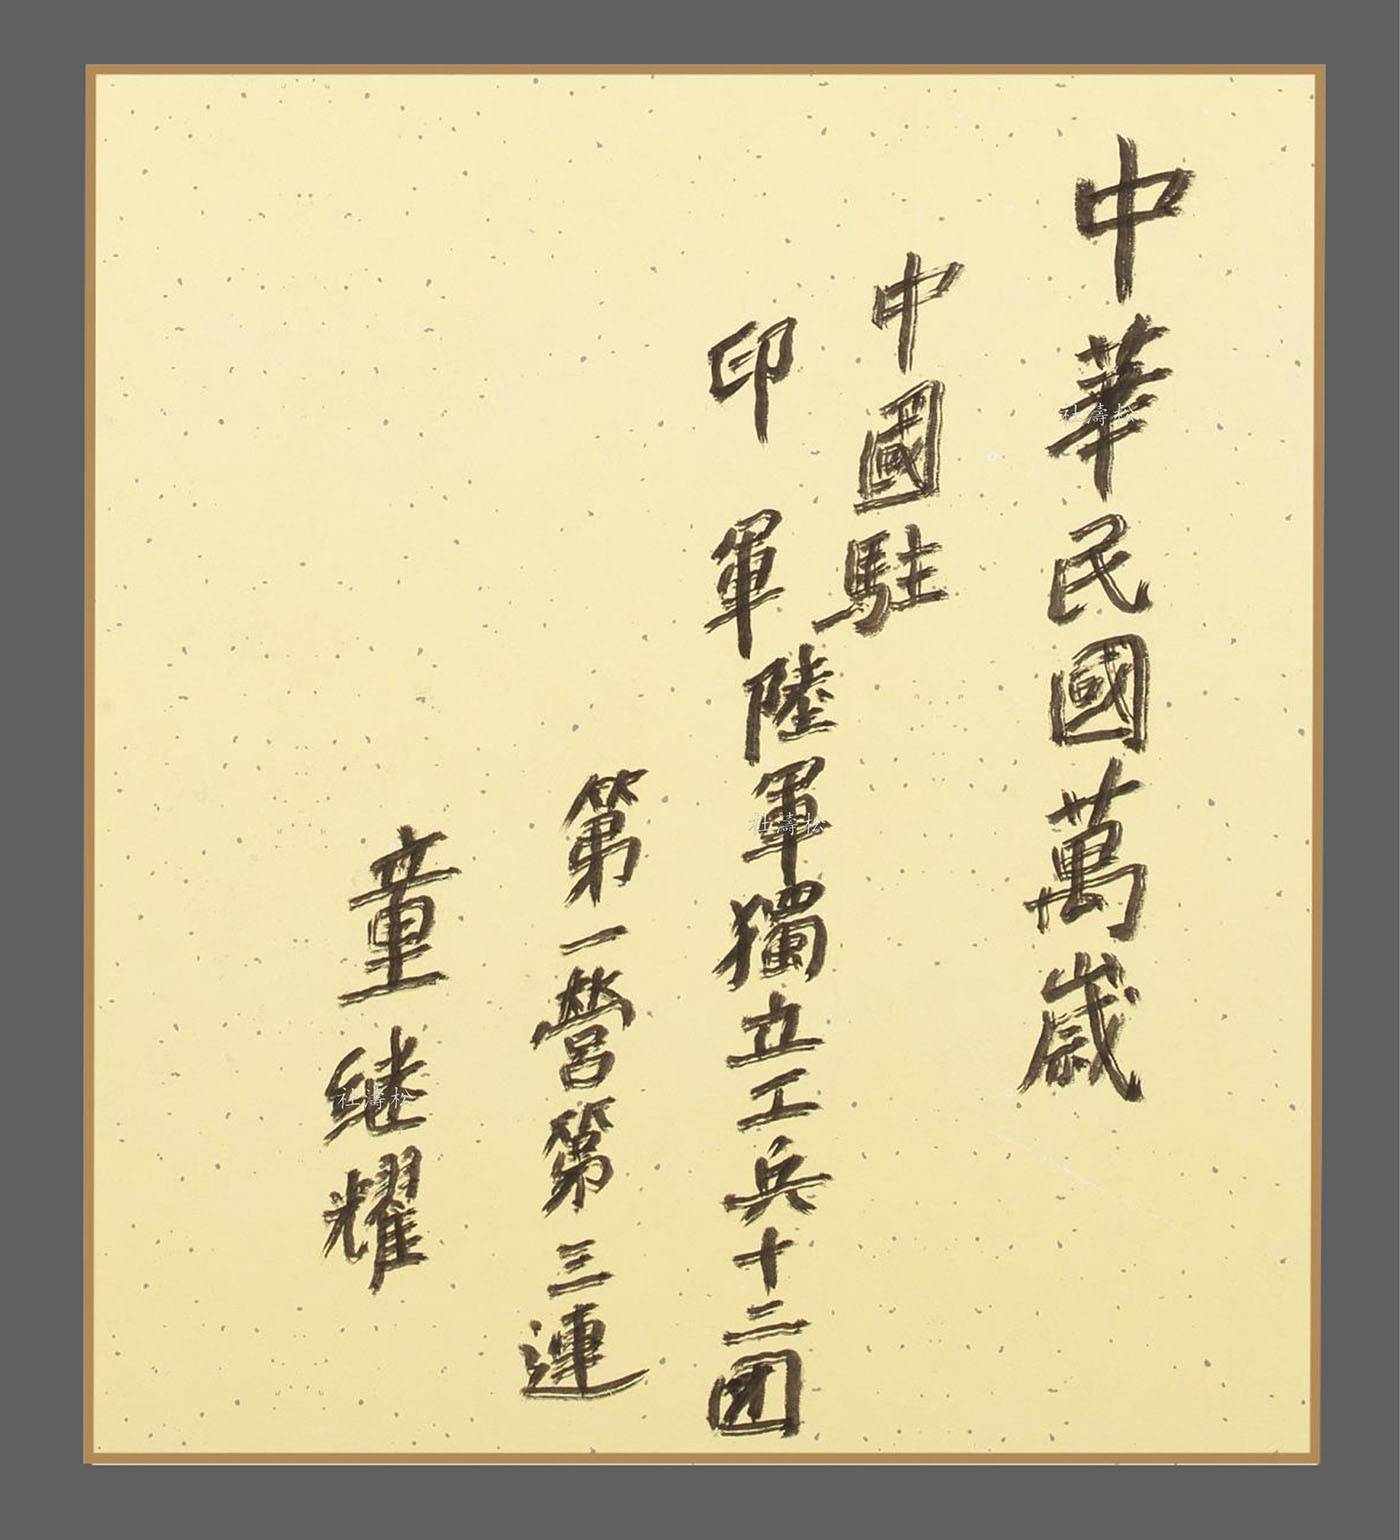 中華民國萬歲
中國駐
印軍陸軍獨立工兵十二团
第一營第三連
童继耀
杜濤松
杜濤松
杜濤松